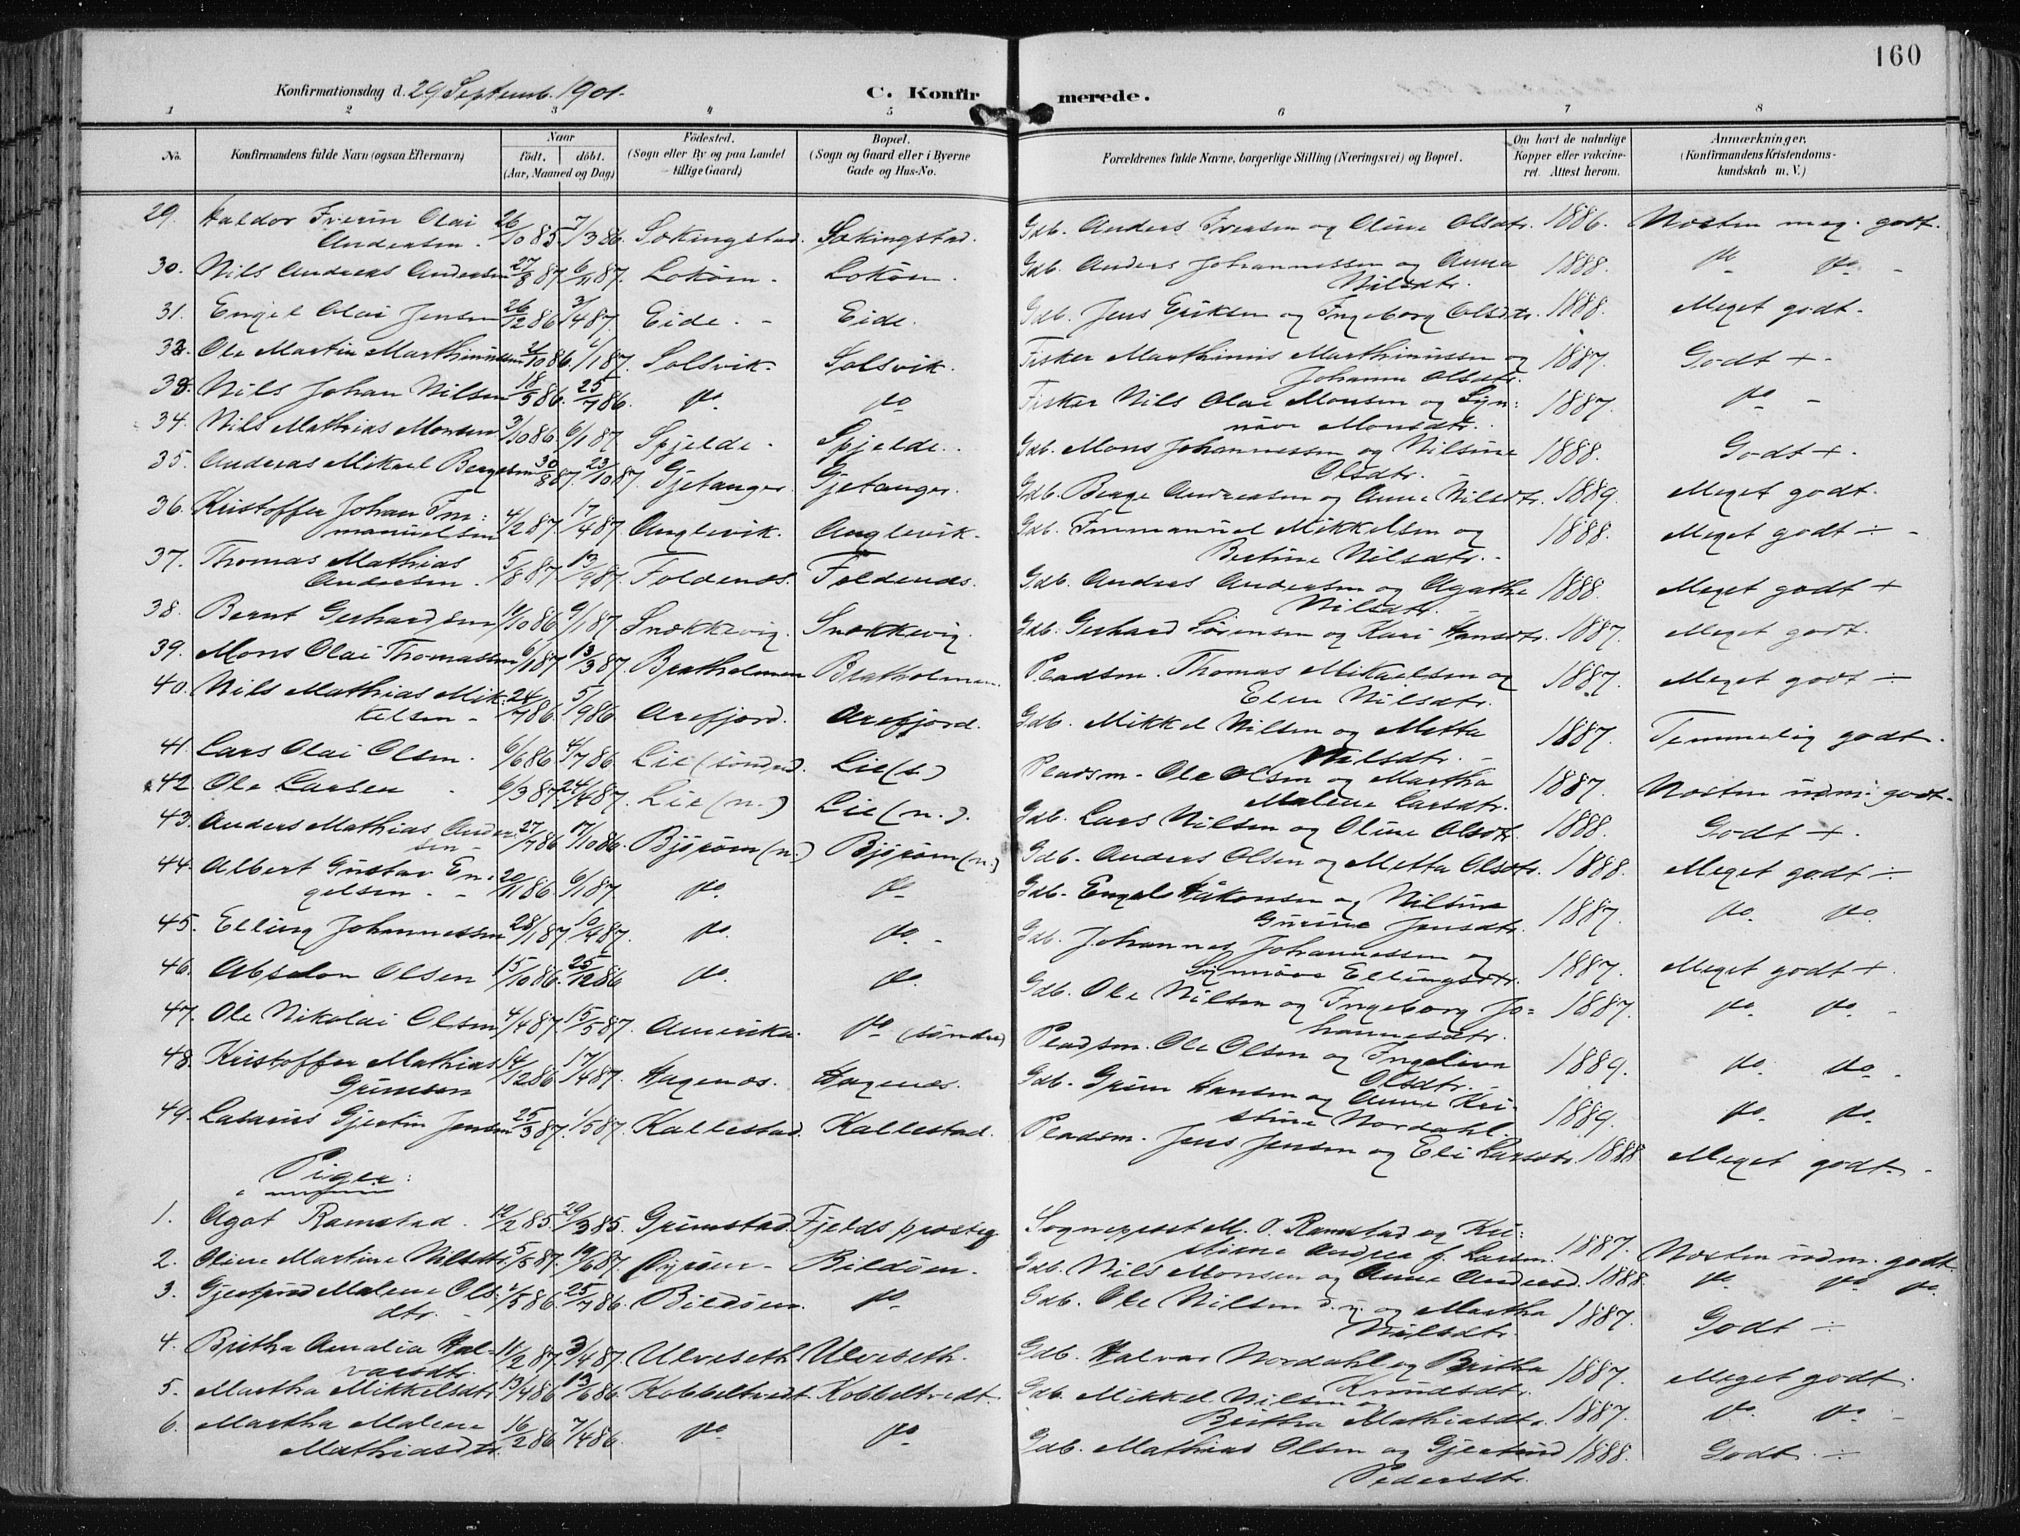 160
Konfirmationsdag d. 29 Septemb. 1901.
C. Konfirmerede.
1 2 3 4 5 6 7 8
No. Konfirmandens fulde Navn (ogsaa Efternavn) Naar födt. döbt. (Aar, Maaned og Dag) Födested. (Sogn eller By og paa Landet tillige Gaard) Bopæl. (Sogn og Gaard eller i Byerne Gade og Hus-No. Forældrenes fulde Navne, borgerlige Stilling (Næringsvei) og Bopæl. Om havt de naturlige Kopper eller vakcineret. Attest herom. Anmærkninger. (Konfirmandens Kristendomskundskab m. V.)
29. Haldor Olai Andersen 26/10 85 7/3 86. Sækingstad. Sækingstad. Gdb. Anders Iversen og Oline Olsdtr. 1886. Næsten meg. godt.
30. Nils Andreas Andersen 27/8 87 6/11 87. Lokøen. Lokøen. Gdb. Anders Johannessen og Anna Nilsdtr. 1888. do do
31. Engel Olai Jensen 26/12 86 3/4 87. Eide. Eide. Gdb. Jens Eriksen og Ingeborg Olsdtr. 1888. Meget godt.
32. Ole Martin Marthinussen /10 86 6/1 87. Solsvik. Solsvik. Fisker Marthinus Marthinussen og Johanna Olsdtr. 1887. Godt +
33. Nils Johan Nilsen 18/5 86. 25/7 86. do do Fisker Nils Olai Monsen og Synnøve Monsdtr. 1887. do
34. Nils Mathias Monsen 3/10 86 6/1 87 Spjelde Spjelde. Gdb. Mons Johannessen og Nilsine Olsdtr. 1888. Godt +
35. Andreas Mikael Bergesen 30/8 87. 23/10 87 Gjetanger. Gjetanger. Gdb. Berge Andreasen og Anne Nilsdtr. 1889. Meget godt.
36. Kristoffer Johan Immanuelsen 4/2 87. 17/4 87 Anglevik. Anglevik. Gdb. Immanuel Mikkelsen og Bertine Nilsdtr. 1888. Meget godt ÷
37. Thomas Mathias Andersen 5/8 87 13/9 87. Foldenæs. Foldenæs. Gdb. Anders Andersen og Agathe Nilsdtr. 1888. Meget godt +
38. Bernt Gerhardsen 19/10 86 6/1 87 Snekkevig. Snekkevig. Gdb. Gerhard Sørensen og Kari Hansdtr. 1887. Meget godt.
39. Mons Olai Thomassen 6/1 87. 13/3 87. Bratholmen Bratholmen. Pladsm. Thomas Mikaelsen og Elen Nilsdtr. 1887. Meget godt ÷
40. Nils Mathias Mikkelsen 24/7 86. 5/9 86. Arefjord. Arefjord. Gdb. Mikkel Nilsen og Metta Nilsdtr. 1887. Temmelig godt.
41. Lars Olai Olsen. 6/6 86 4/7 86. Lie (søndre). Lie (s.) Pladsm. Ole Olsen og Martha Malene Larsdtr. 1887. Næsten udm. godt.
42. Ole Larsen 6/3 87 24/4 87. Lie (n.) Lie (n.). Gdb. Lars Nilsen og Oline Olsdtr. 1888. Godt +
43. Anders Mathias Andersen 27/7 86 17/10 86. Bjørøen (n.) Bjørøen (n.) Gdb. Anders Olsen og Metta Olsdtr. 1888. Meget godt ÷
44. Albert Gustav Engelsen 20/11 86. 6/1 87. do. do Gdb. Engel Håkonsen og Nilsine Gurine Jensdtr. 1887. do do
45. Elling Johannessen 28/1 87 10/4 87. do. do. Gdb. Johannes Johannessen og Synnøve Ellingsdtr. 1887. Meget godt +
46. Absalon Olsen 15/10 86. 25/12 86 do. do. Gdb. Ole Nilsen og Ingeborg Johannesdtr. 1887. do. do.
47. Ole Nikolai Olsen 4/4 87. 15/5 87. Amerika do (søndre) Pladsm. Ole Olsen og Ingeleiva Olsdtr. 1889. do. do.
48. Kristoffer Mathias Grimsen 14/12 86. 17/4 87. Hagenæs. Hagenæs. Gdb. Grim Hansen og Anne Kristine Nordahl. 1889. do. do.
49. Lasarus Gjertin Jensen 25/3 87. 1/5 87. Kallestad. Kallestad. Pladsm. Jens Jensen og Eli Larsdtr. 1888 Meget godt.
Piger:
1. Agot Ramstad. 12/2 85. 29/3 85. Grimstad. Fjelds præstg. Sogneprest M. O. Ramstad og Kristiane Andrea f. Larsen. 1887. Næsten udm. godt.
2. Oline Martine Nilsdtr. 5/5 87. 19/6 87. Øyrøen. Bildøen. Gdb. Nils Monsen og Anne Andersd. 1888 do do do
3. Gjertrud Malene Olsdtr. /5 86. 25/7 86. Bildøen. do Gdb. Ole Nilsen d.y. og Martha Nilsdtr. 1887. Godt ÷
4. Britha Amalia Halvarsdtr. 11/2 87. 3/4 87. Ulveseth Ulveseth. Gdb. Halvar Nordahl og Britha Knudsdtr. 1887. Meget godt.
5. Martha Mikkelsdtr. 13/4 86. 13/6 86. Kobbeltvedt. Kobbeltvedt. Gdb. Mikkel Nilsen og Britha Mathiasdtr. 1887. do. do.
6. Martha Malene Mathiasdtr. 16/2 86. 7/4 86. do do Gdb. Mathias Olsen og Gjertrud Pedersdtr. 1888. Godt ÷